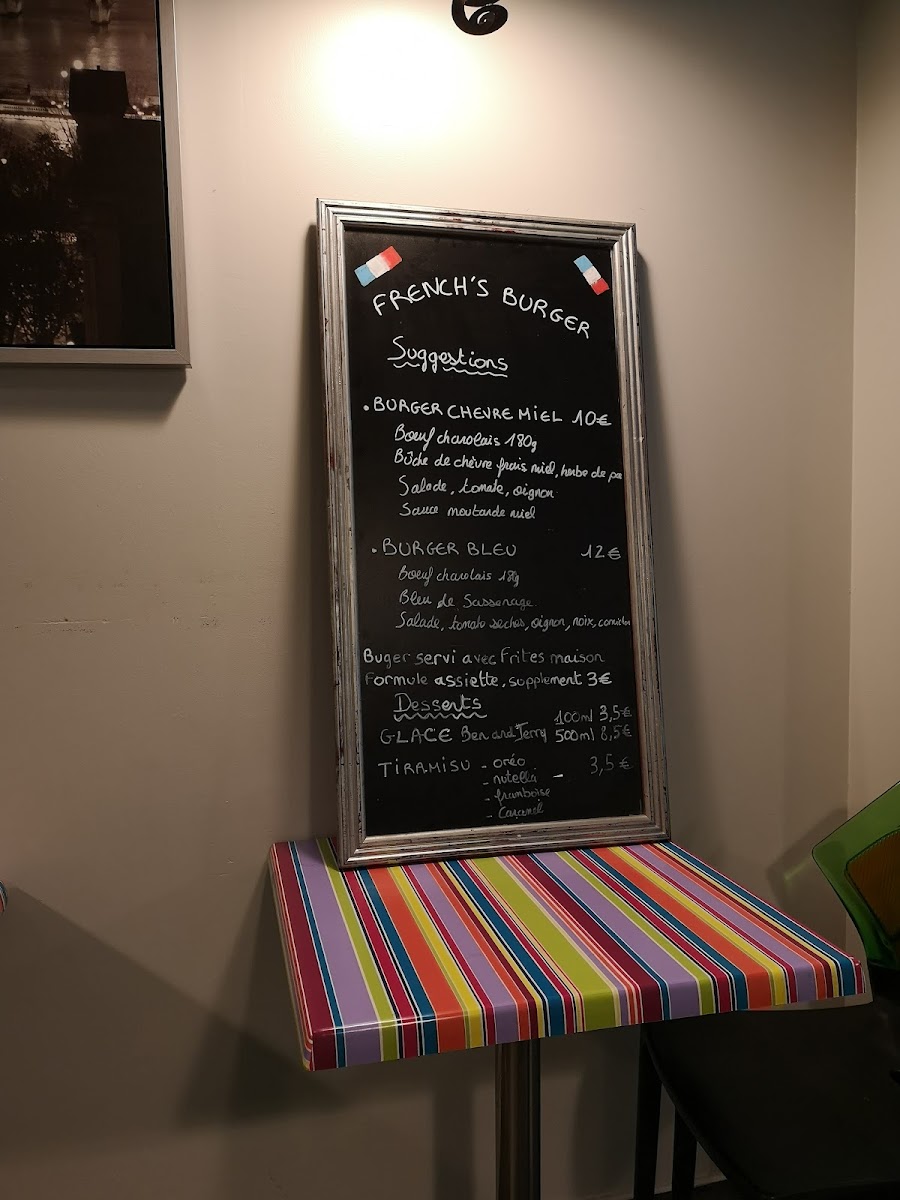 FRENCH'S BURGER
Suggestions
• BURGER CHEVRE MIEL 10€
Bœuf charolais 180g
Bûche de chèvre frais miel, herbe de pro
Salade, tomate, oignon
Sauce moutarde miel
• BURGER BLEU 12€
Bœuf charolais 180g
Bleu de Sassenage
Salade, tomate seches, oignon, noix, cornichon
Buger servi avec Frites maison
Formule assiette, supplement 3€
Desserts
100ml 3,5€
GLACE Ben and Jerry 500ml 8,5€
TIRAMISU - oréo 3,5€
- nutella
- framboise
- Caramel